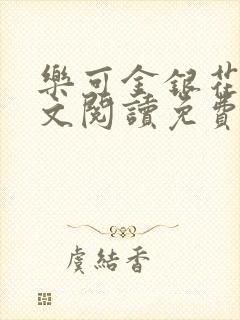 樂可金銀花
文閱讀免費
虞結香